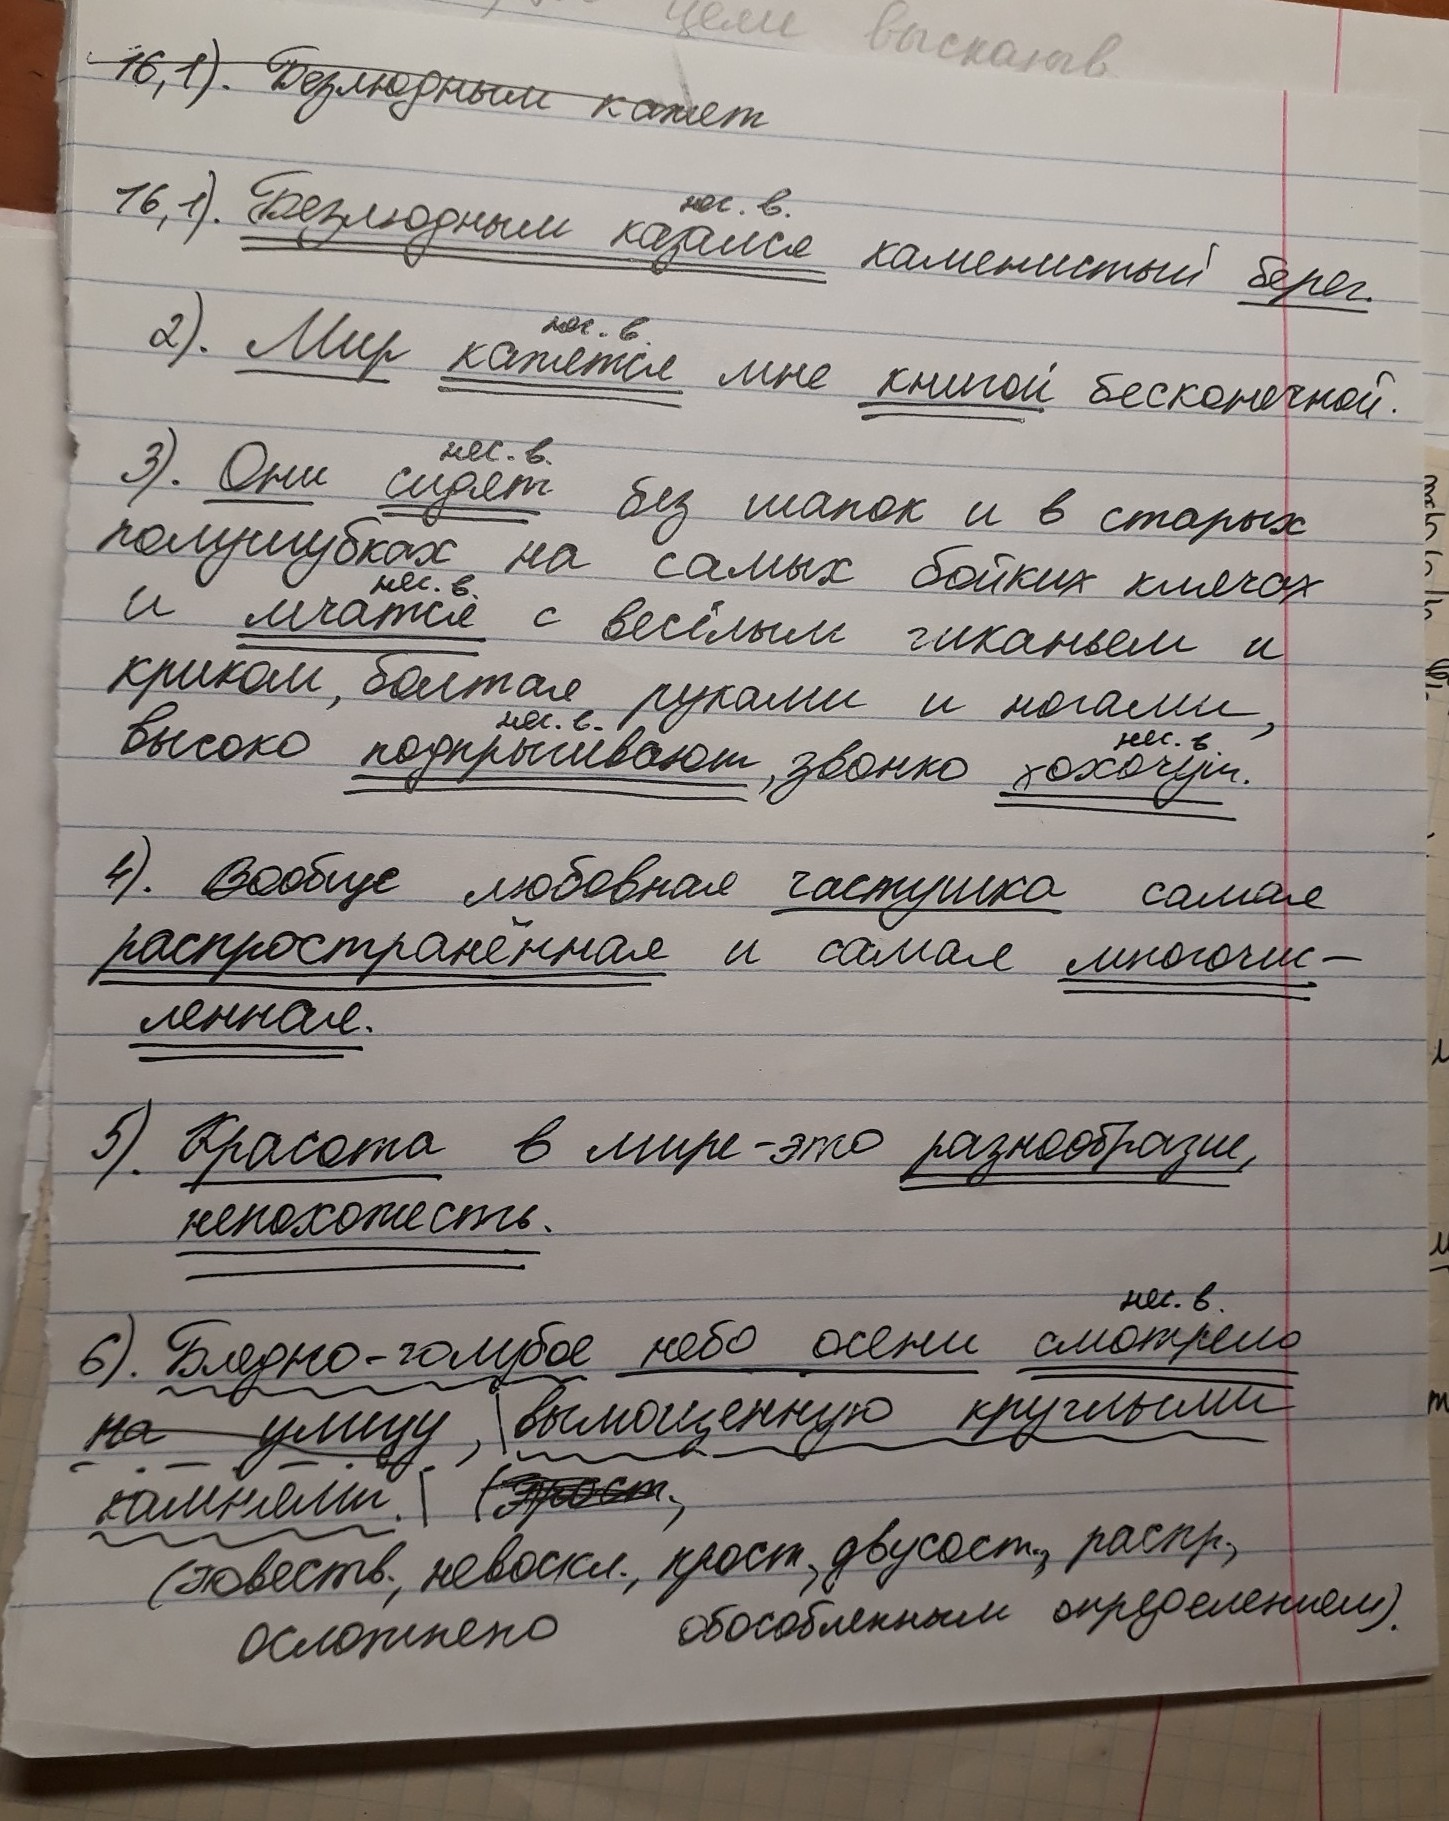 цели высказыв
16,1). Безлюдным кажет
нес. в.
16,1). Безлюдным казался каменистый берег.
нес. в.
2). Мир кажется мне книгой бесконечной.
нес. в.
3). Они сидят без шапок и в старых
полушубках на самых бойких клячах
нес. в.
и мчатся с весёлым гиканьем и
криком, болтая руками и ногами,
нес. в. нес. в.
высоко подпрыгивают, звонко хохочут.
4). Вообще любовная частушка самая
распространённая и самая многочис-
ленная.
5). Красота в мире - это разнообразие,
непохожесть.
нес. в.
6). Бледно-голубое небо осени смотрело
на улицу, вымощенную круглыми
камнями.
(повеств., невоскл., прост., двусост., распр.,
осложнено обособленным определением).